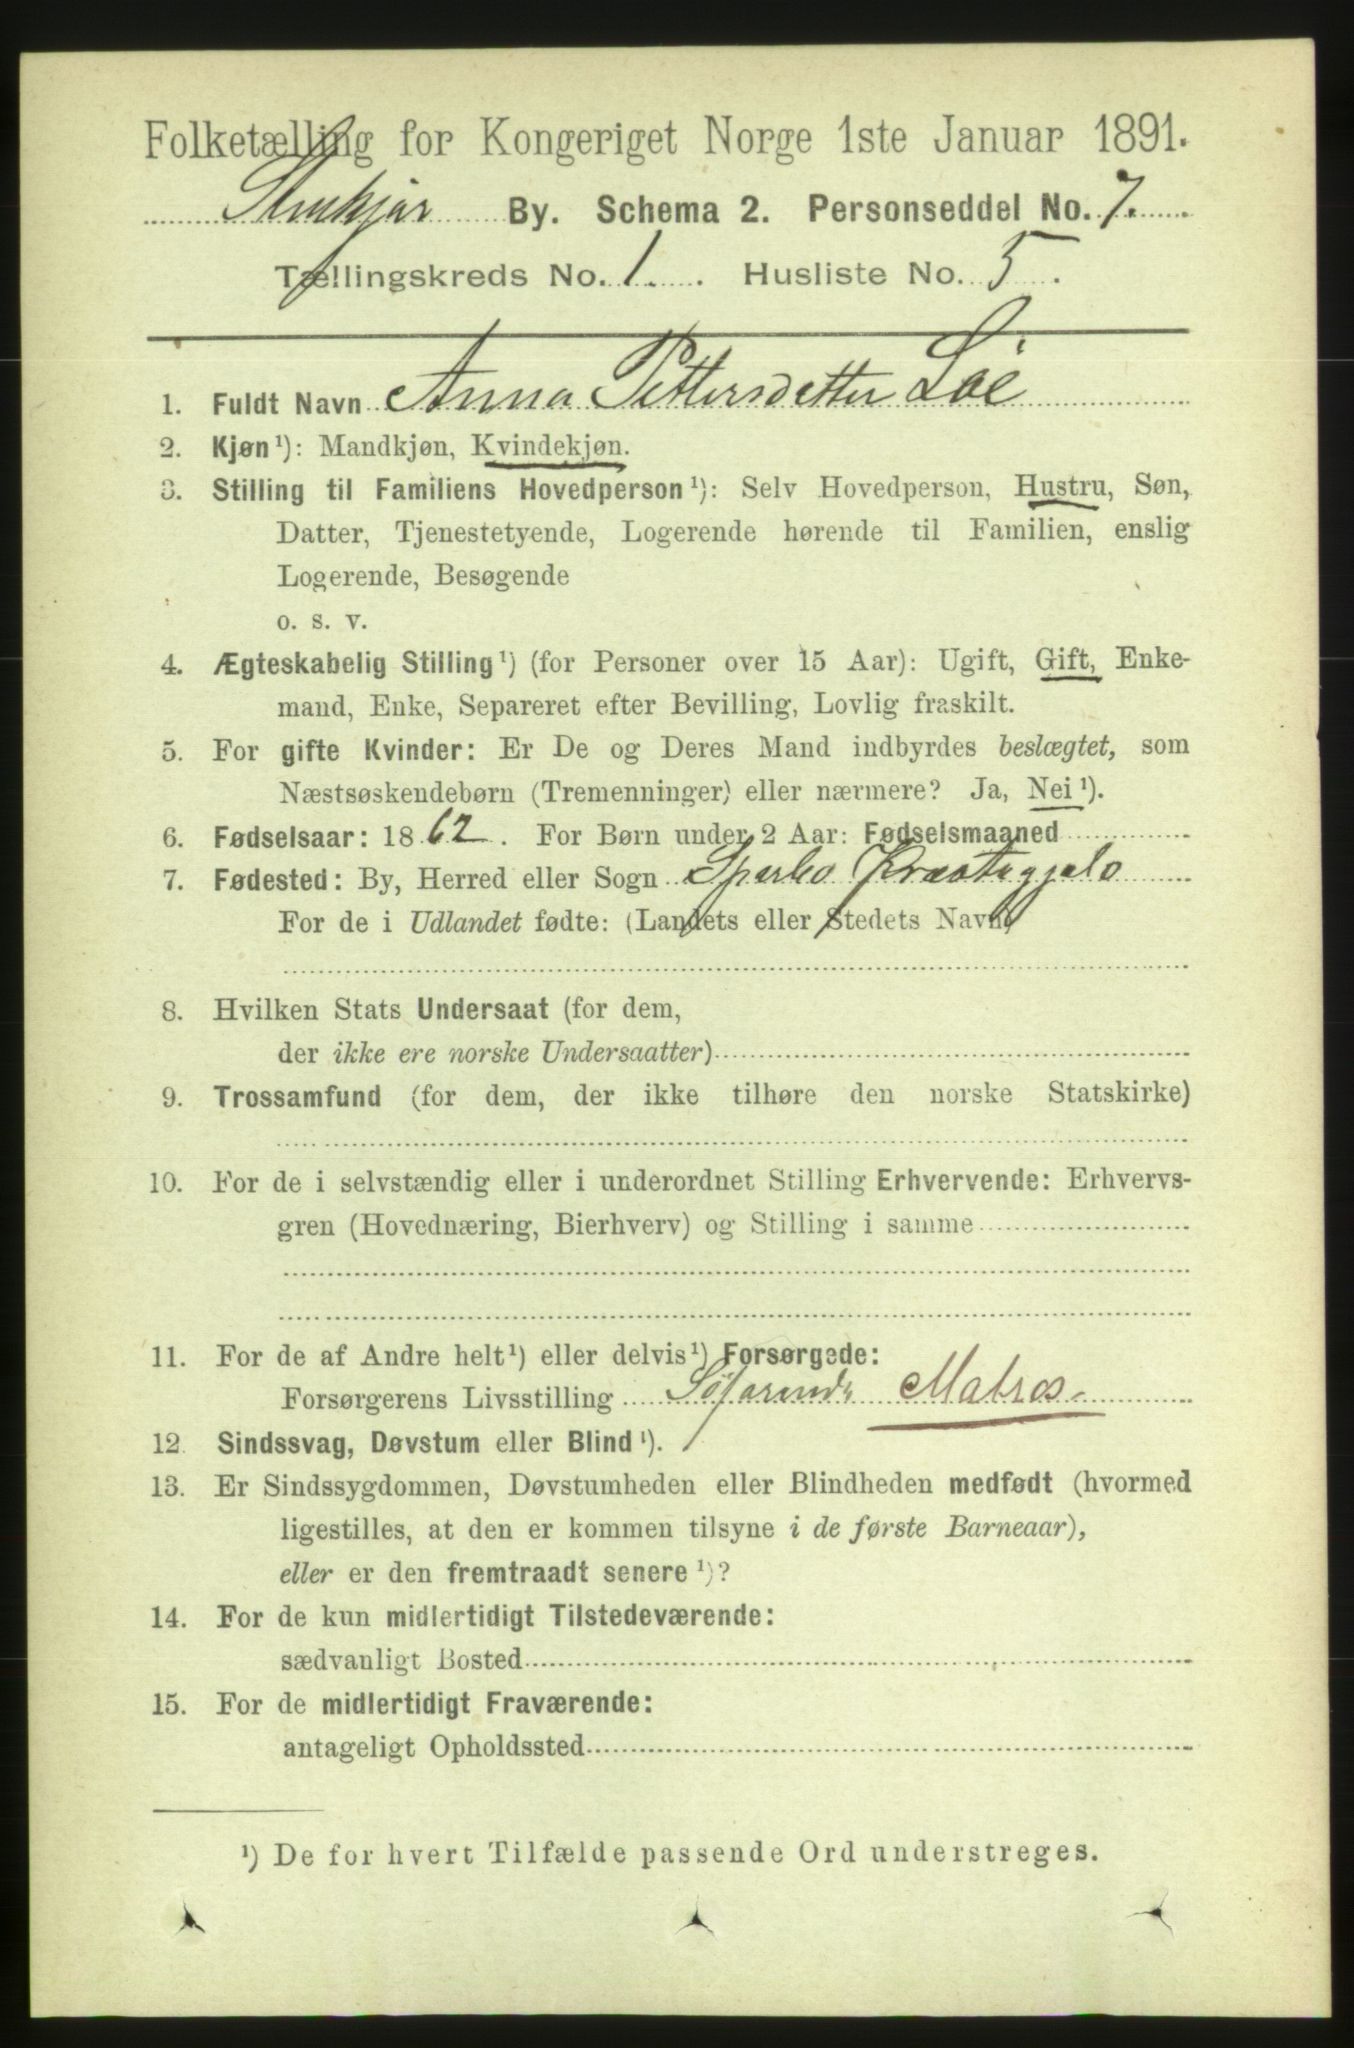 Folketælling for Kongeriget Norge 1ste Januar 1891.
Stenkjær By. Schema 2. Personseddel No. 7.
Tællingskreds No. 1. Husliste No. 5.
1. Fuldt Navn Anna Pettersdatter Löe
2. Kjøn¹): Mandkjøn, Kvindekjøn.
3. Stilling til Familiens Hovedperson¹): Selv Hovedperson, Hustru, Søn,
Datter, Tjenestetyende, Logerende hørende til Familien, enslig
Logerende, Besøgende
o. s. v.
4. Ægteskabelig Stilling¹) (for Personer over 15 Aar): Ugift, Gift, Enke-
mand, Enke, Separeret efter Bevilling, Lovlig fraskilt.
5. For gifte Kvinder: Er De og Deres Mand indbyrdes beslægtet, som
Næstsøskendebørn (Tremenninger) eller nærmere? Ja, Nei¹).
6. Fødselsaar: 1862. For Børn under 2 Aar: Fødselsmaaned
7. Fødested: By, Herred eller Sogn Sparbo Præstegjeld
For de i Udlandet fødte: (Landets eller Stedets Navn)
8. Hvilken Stats Undersaat (for dem,
der ikke ere norske Undersaatter)
9. Trossamfund (for dem, der ikke tilhøre den norske Statskirke)
10. For de i selvstændig eller i underordnet Stilling Erhvervende: Erhvervs-
gren (Hovednæring, Bierhverv) og Stilling i samme
11. For de af Andre helt¹) eller delvis¹) Forsørgede:
Forsørgerens Livsstilling Søfarende Matros
12. Sindssvag, Døvstum eller Blind¹).
13. Er Sindssygdommen, Døvstumheden eller Blindheden medfødt (hvormed
ligestilles, at den er kommen tilsyne i de første Barneaar),
eller er den fremtraadt senere¹)?
14. For de kun midlertidigt Tilstedeværende:
sædvanligt Bosted
15. For de midlertidigt Fraværende:
antageligt Opholdssted
¹) De for hvert Tilfælde passende Ord understreges.